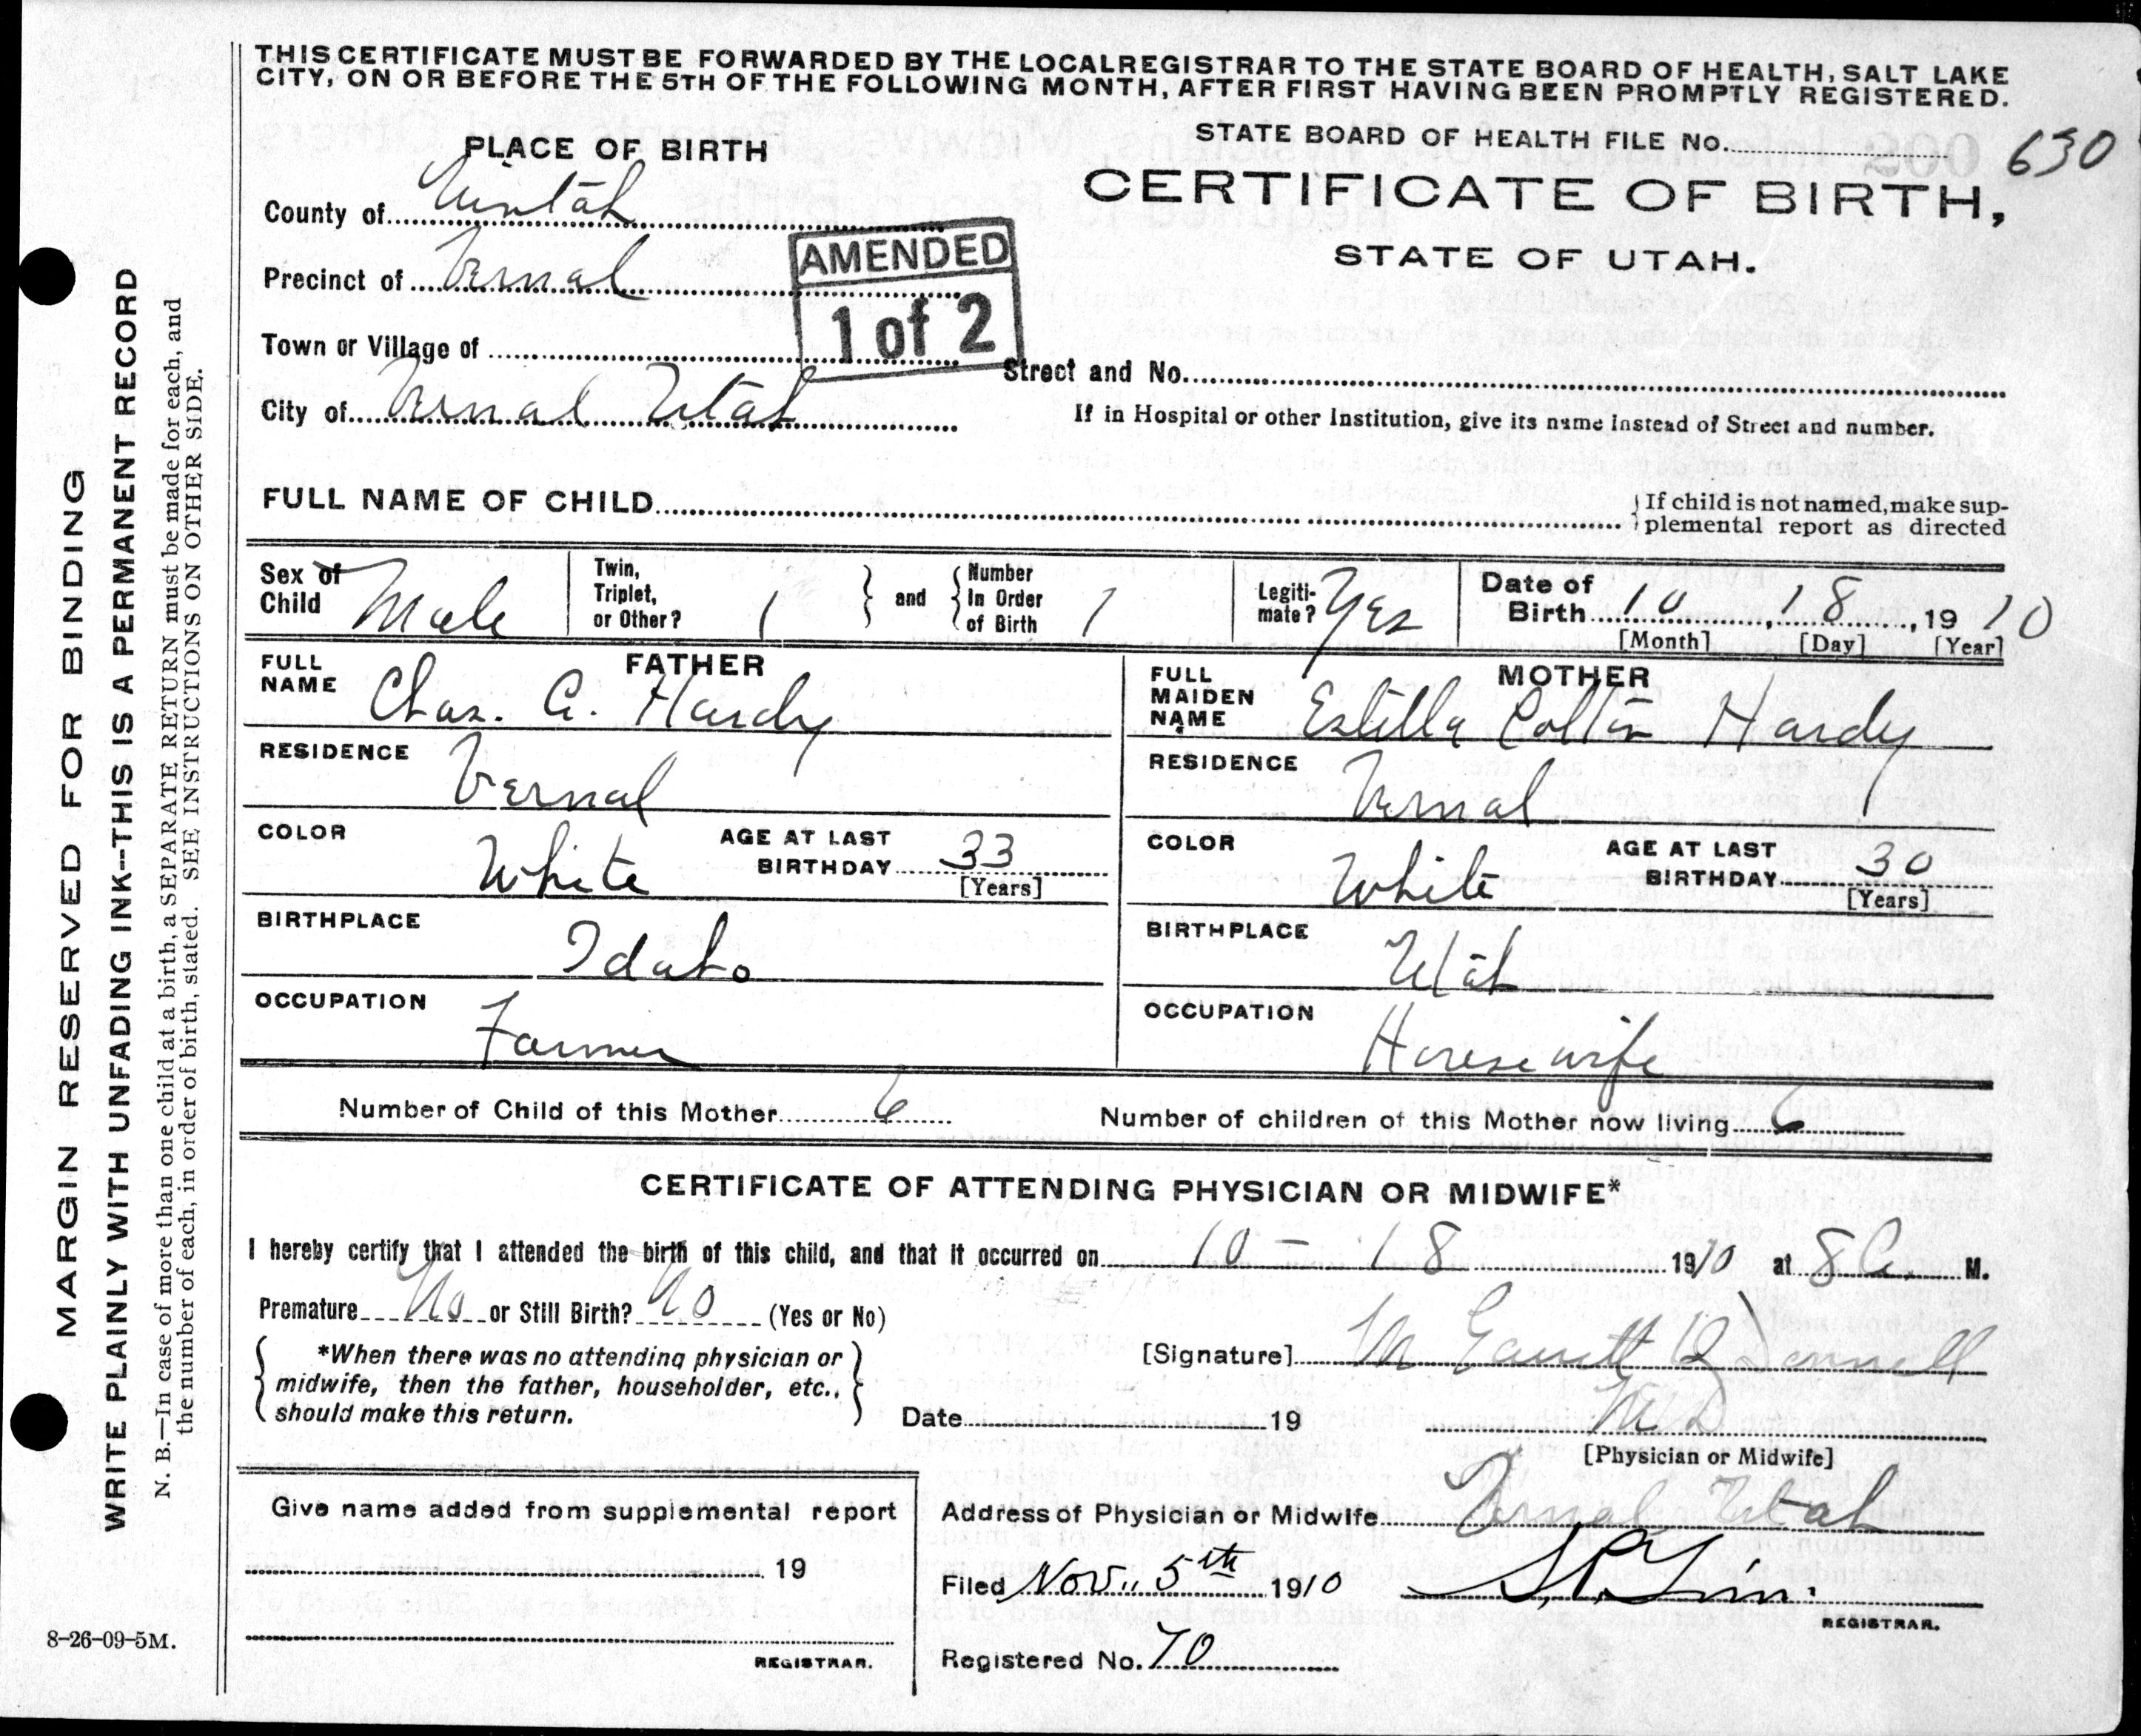 THIS CERTIFICATE MUST BE FORWARDED BY THE LOCAL REGISTRAR TO THE STATE BOARD OF HEALTH, SALT LAKE
CITY, ON OR BEFORE THE 5TH OF THE FOLLOWING MONTH, AFTER FIRST HAVING BEEN PROMPTLY REGISTERED.
PLACE OF BIRTH
STATE BOARD OF HEALTH FILE No. 630
County of Uintah
CERTIFICATE OF BIRTH,
STATE OF UTAH.
AMENDED
1 of 2
Precinct of Vernal
Town or Village of
Street and No.
City of Vernal Utah
If in Hospital or other Institution, give its name instead of Street and number.
FULL NAME OF CHILD
If child is not named, make sup-
plemental report as directed
Sex of Child Male
Twin, Triplet, or Other? 1
and
Number In Order of Birth 1
Legiti-mate? Yes
Date of Birth 10, 18, 1910
[Month] [Day] [Year]
FATHER
FULL NAME Chas. A. Hardy
RESIDENCE Vernal
COLOR White
AGE AT LAST BIRTHDAY 33
[Years]
BIRTHPLACE Idaho
OCCUPATION Farmer
MOTHER
FULL MAIDEN NAME Estella Colton Hardy
RESIDENCE Vernal
COLOR White
AGE AT LAST BIRTHDAY 30
[Years]
BIRTHPLACE Utah
OCCUPATION Housewife
Number of Child of this Mother 6
Number of children of this Mother now living 6
CERTIFICATE OF ATTENDING PHYSICIAN OR MIDWIFE*
I hereby certify that I attended the birth of this child, and that it occurred on 10 - 18 1910 at 8 A. M.
Premature No or Still Birth? No (Yes or No)
*When there was no attending physician or
midwife, then the father, householder, etc.,
should make this return.
[Signature] M Garrett O'Donnell
Date 19
M D
[Physician or Midwife]
Give name added from supplemental report
19
REGISTRAR.
Address of Physician or Midwife Vernal Utah
Filed Nov. 5th 1910
REGISTRAR.
Registered No. 70
MARGIN RESERVED FOR BINDING
WRITE PLAINLY WITH UNFADING INK--THIS IS A PERMANENT RECORD
N. B.—In case of more than one child at a birth, a SEPARATE RETURN must be made for each, and
the number of each, in order of birth, stated. SEE INSTRUCTIONS ON OTHER SIDE.
8-26-09-5M.